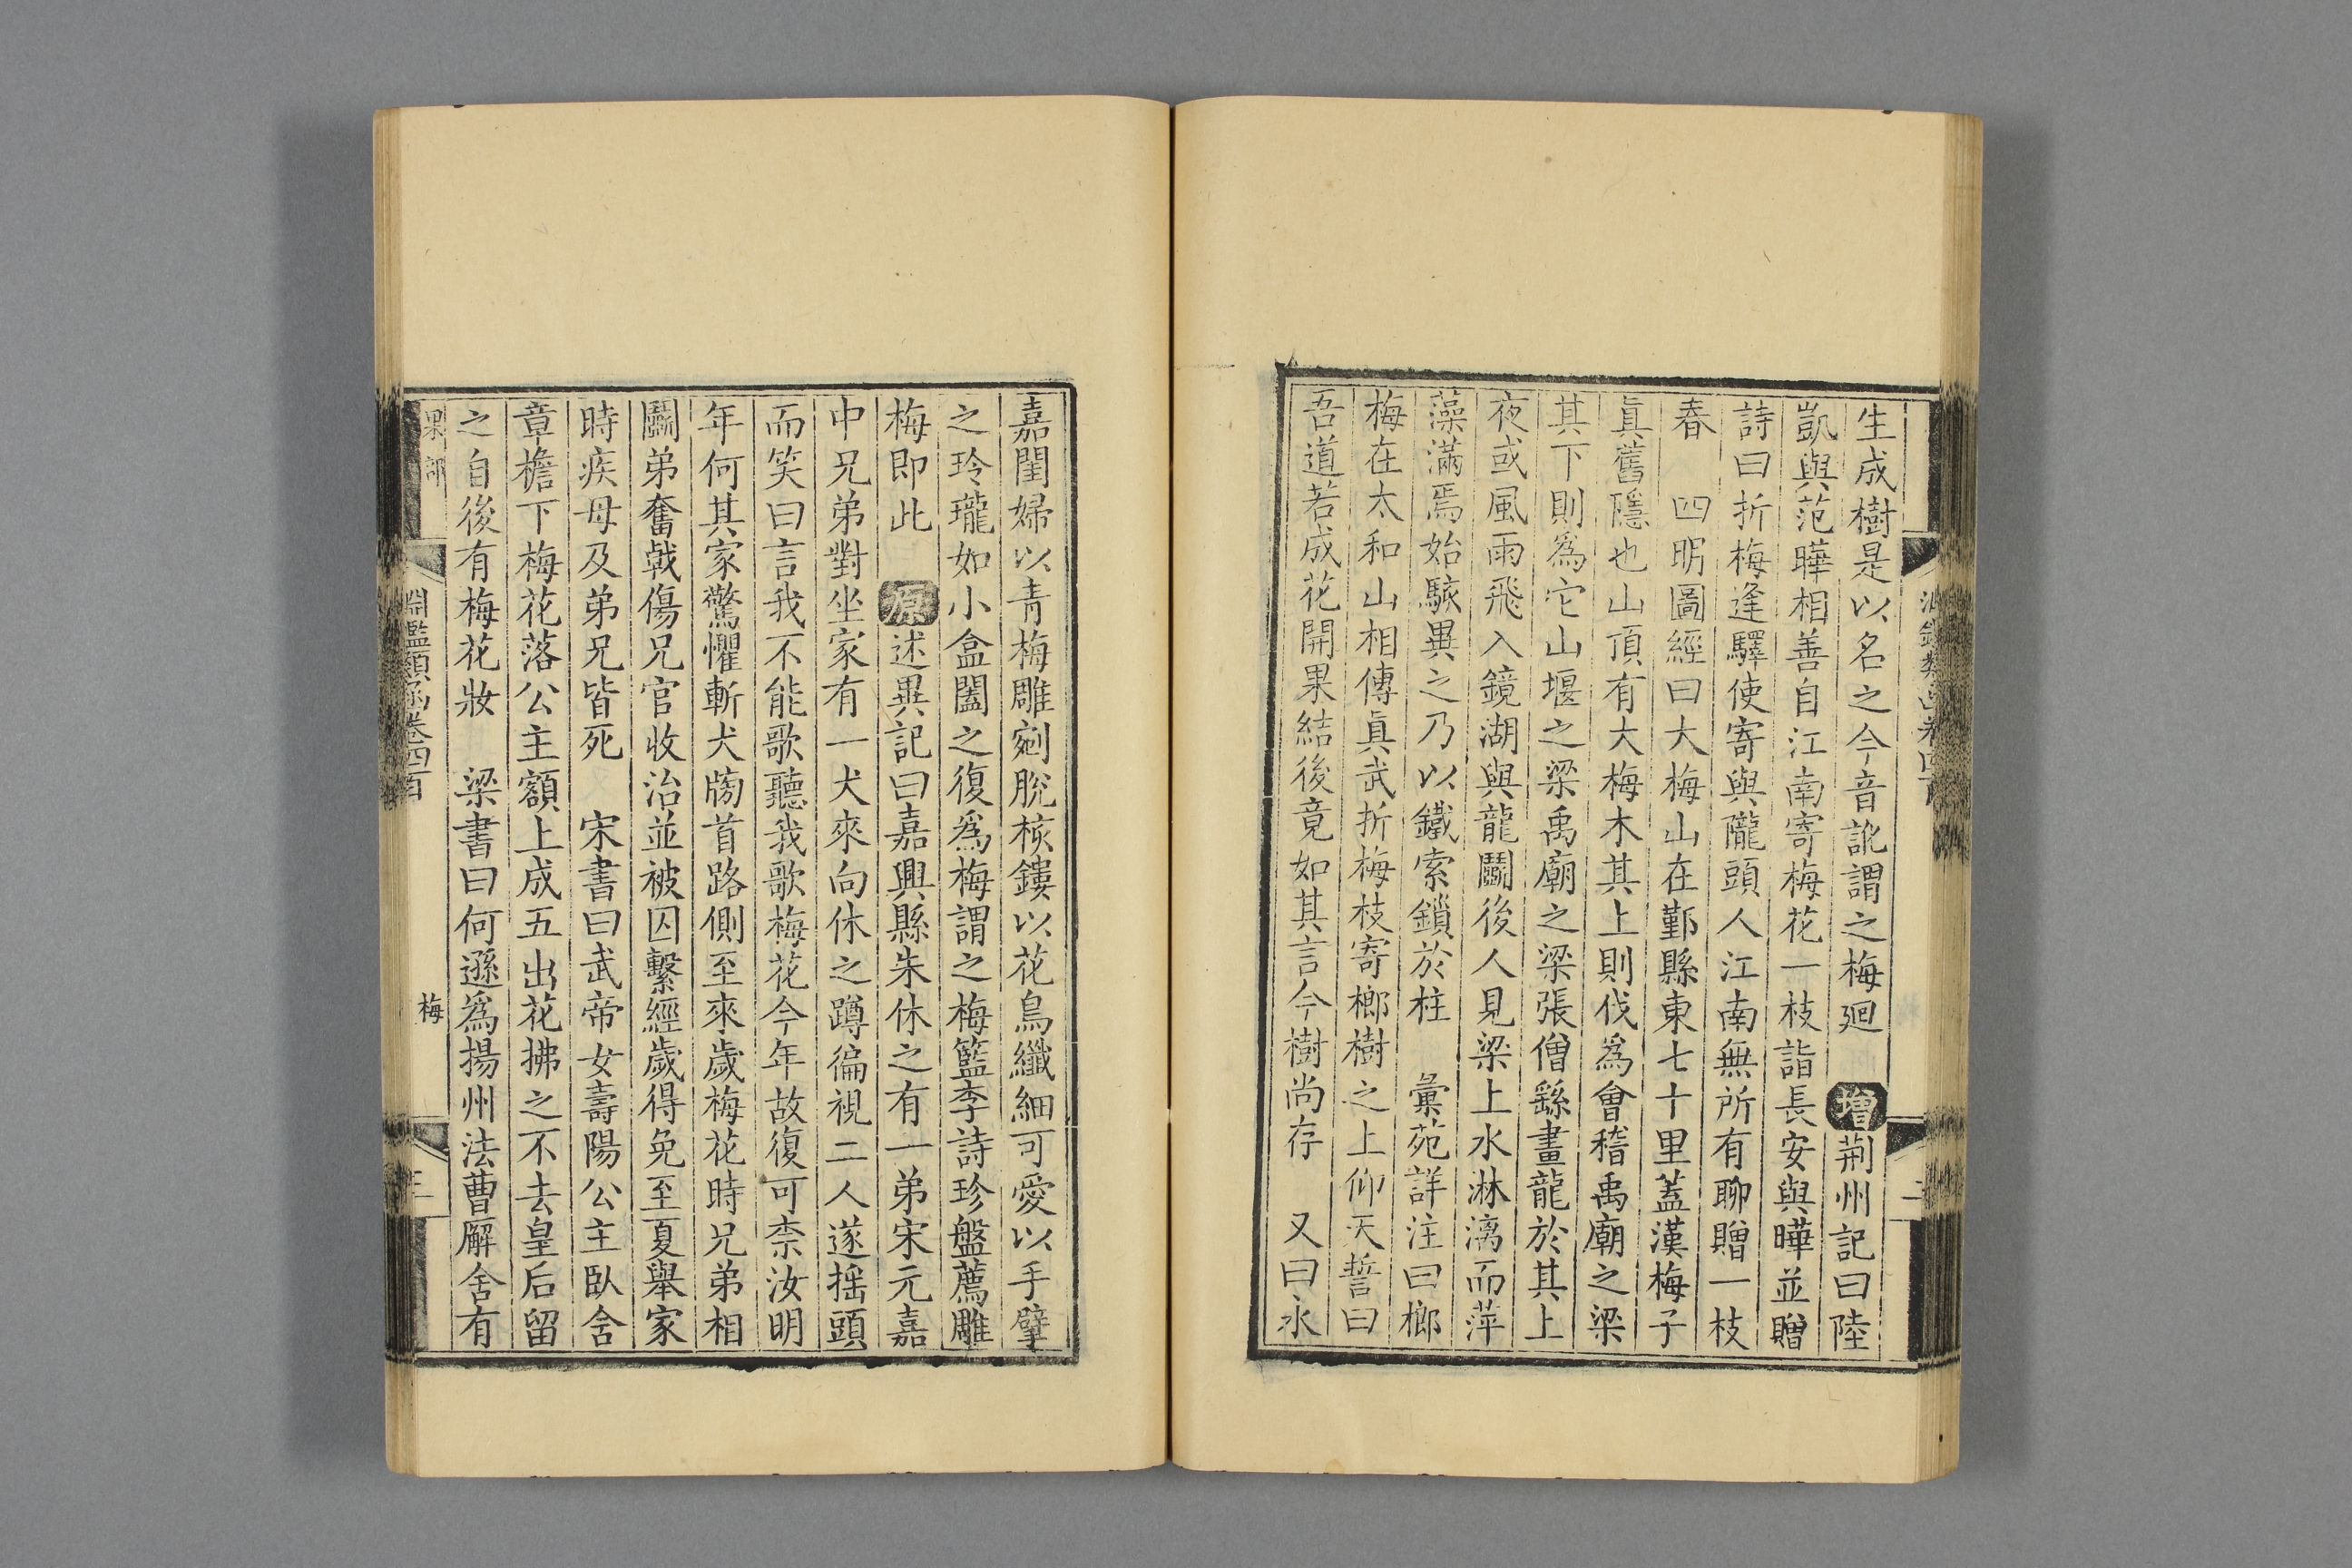 生成樹是以名之今音訛謂之梅廻 增荆州記曰陸
凱與范曄相善自江南寄梅花一枝詣長安與曄並贈
詩曰折梅逢驛使寄與隴頭人江南無所有聊贈一枝
春 四明圖經曰大梅山在鄞縣東七十里蓋漢梅子
眞舊隱也山頂有大梅木其上則伐爲會稽禹廟之梁
其下則爲它山堰之梁禹廟之梁張僧繇畫龍於其上
夜或風雨飛入鏡湖與龍鬬後人見梁上水淋漓而萍
藻滿焉始駭異之乃以鐵索鎖於柱 彙苑詳注曰榔
梅在太和山相傳眞武折梅枝寄榔樹之上仰天誓曰
吾道若成花開果結後竟如其言今樹尚存 又曰永
嘉閨婦以青梅雕剜脫核鏤以花鳥纖細可愛以手擘
之玲瓏如小盒闔之復爲梅謂之梅籃李詩珍盤薦雕
梅即此 原述異記曰嘉興縣朱休之有一弟宋元嘉
中兄弟對坐家有一犬來向休之蹲徧視二人遂搖頭
而笑曰言我不能歌聽我歌梅花今年故復可柰汝明
年何其家驚懼斬犬牓首路側至來歲梅花時兄弟相
鬬弟奮戟傷兄官收治並被囚繫經歲得免至夏舉家
時疾母及弟兄皆死 宋書曰武帝女壽陽公主臥含
章檐下梅花落公主額上成五出花拂之不去皇后留
之自後有梅花妝 梁書曰何遜爲揚州法曹廨舍有
果部
淵鑑類函卷四百
梅
三